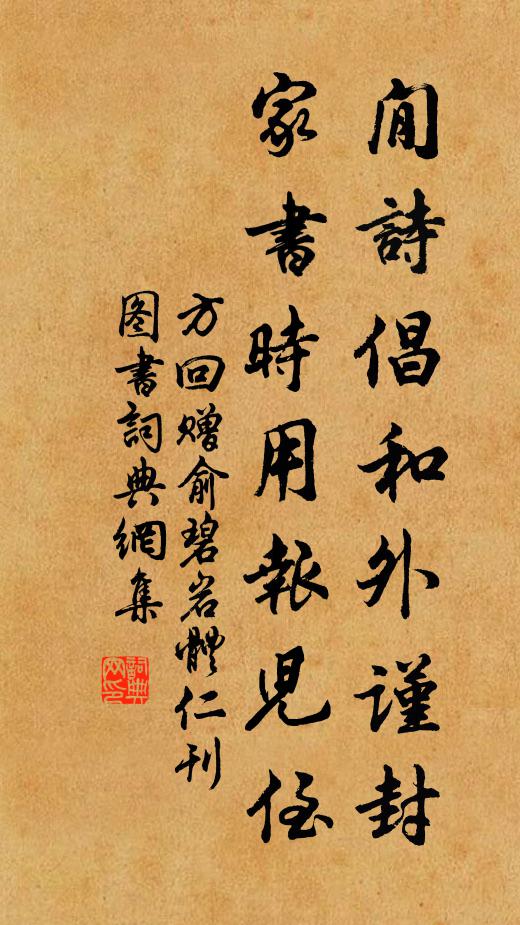 閒詩倡和外謹封
家書時用報兒侄
方回赠俞碧岩體仁刊
图書詞典網集
詞典
网印